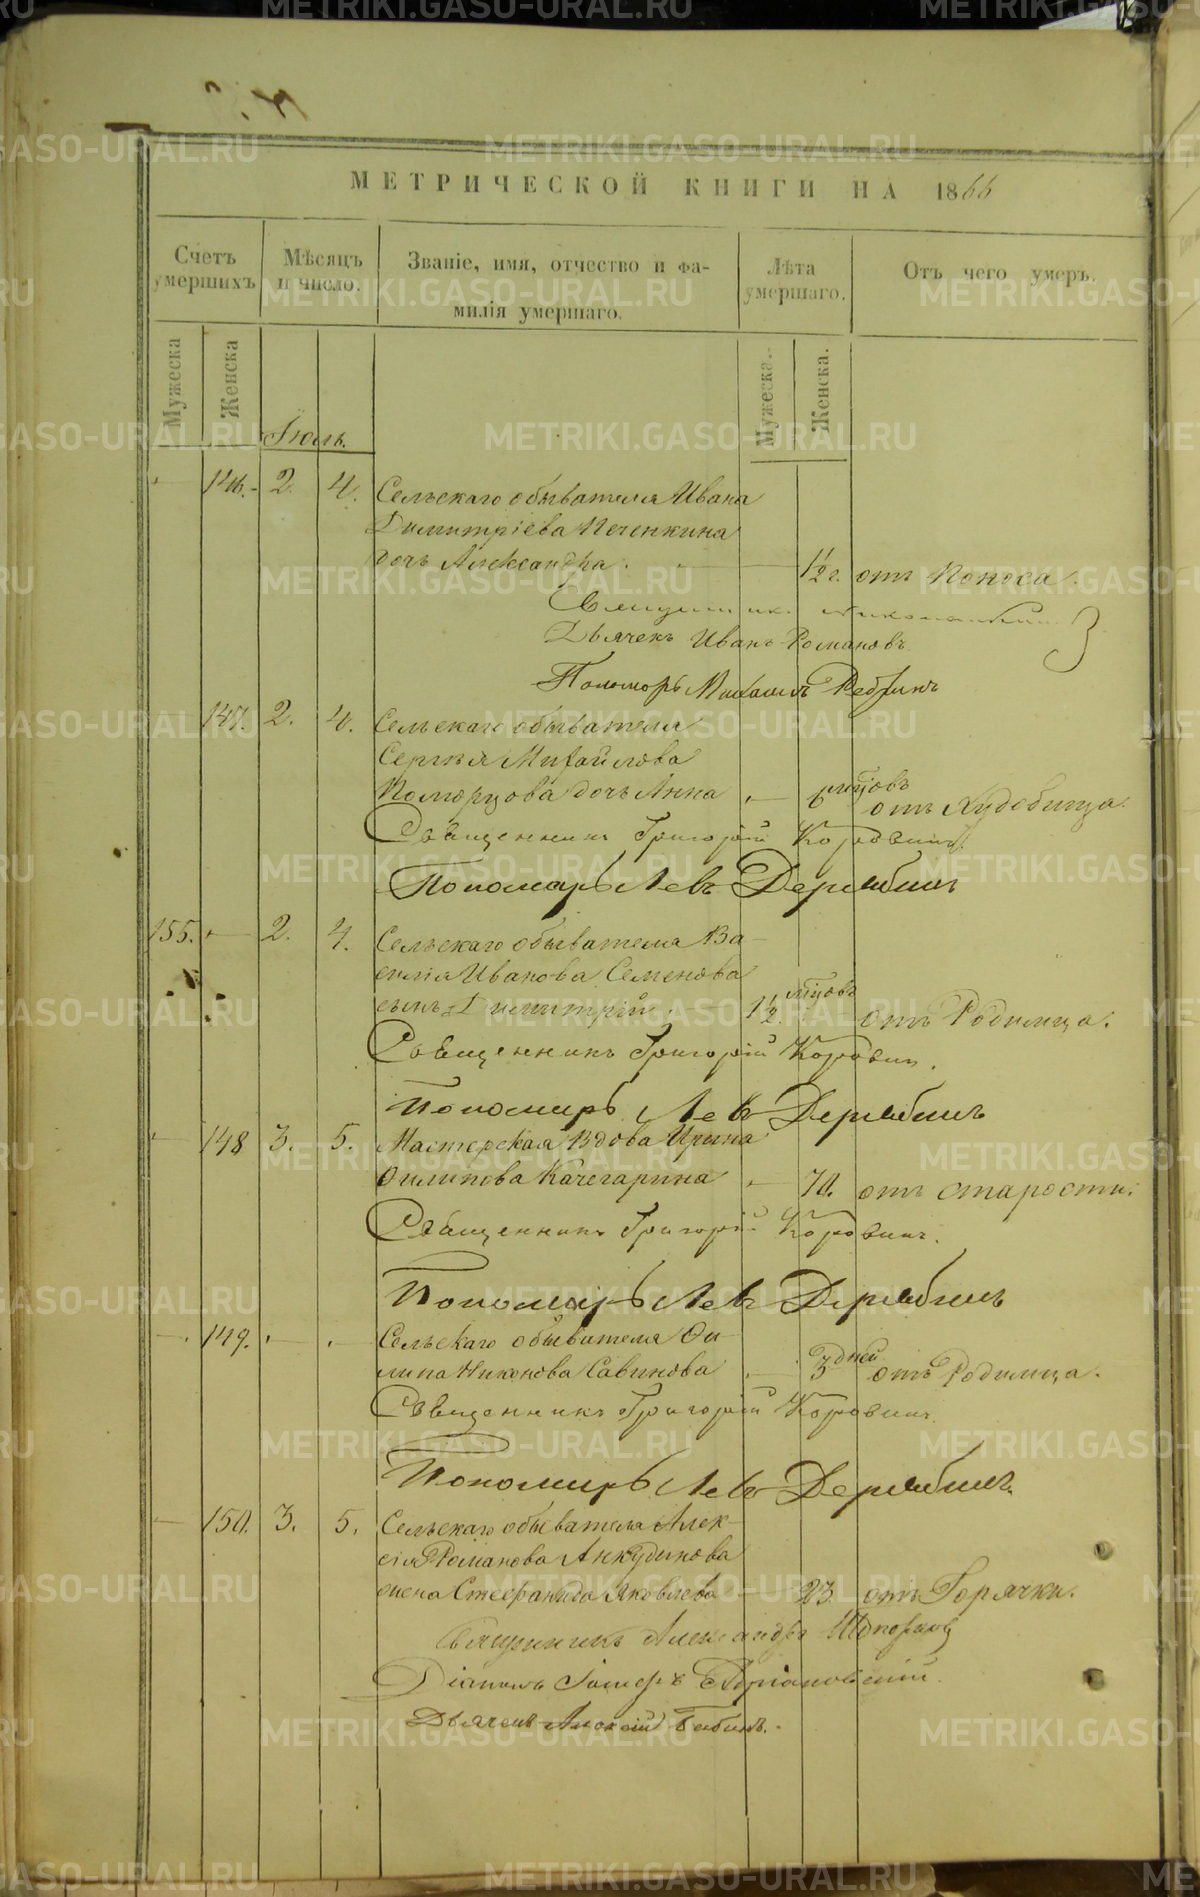 МЕТРИЧЕСКОЙ КНИГИ НА 1866
Счетъ умершихъ
Мѣсяцъ и число.
Званіе, имя, отчество и фа-
милія умершаго.
Лѣта умершаго.
Отъ чего умеръ.
Мужеска
Женска
Мужеска.
Женска.
Іюль.
146. 2. 4. Сельскаго обывателя Ивана
Димитріева Печенкина
дочь Александра. 1 1/2 г. отъ Поноса.
Священникъ
Дьячекъ Иванъ Романовъ
Пономарь Михаилъ
147. 2. 4. Сельскаго обывателя
Сергѣя Михайлова
Поморцова дочь Анна 6 мцовъ отъ Худобища.
Священникъ Григорій Коровинъ.
Пономарь Левъ Дерябинъ
155. 2. 4. Сельскаго обывателя Ва-
силія Иванова Семенова
сынъ Димитрій 1 1/2 мцовъ отъ Родимца.
Священникъ Григорій Коровин.
Пономарь Левъ Дерябинъ
148 3. 5. Мастерская Вдова Ирина
Филипова Качегарина 70. отъ старости.
Священникъ Григорій Коровинъ.
Пономарь Левъ Дерябинъ
149. Сельскаго обывателя Фи-
липа Никонова Савинова 3 дней отъ Родимца.
Священникъ Григорій Коровинъ
Пономарь Левъ Дерябинъ.
150. 3. 5. Сельскаго обывателя Алек-
сія Романова Анкудинова
жена Стефанида Яковлева 23 отъ Горячки.
Священникъ Александръ
Діаконъ
Дьячекъ Алексій Бабинъ.
METRIKI.GASO-URAL.RU